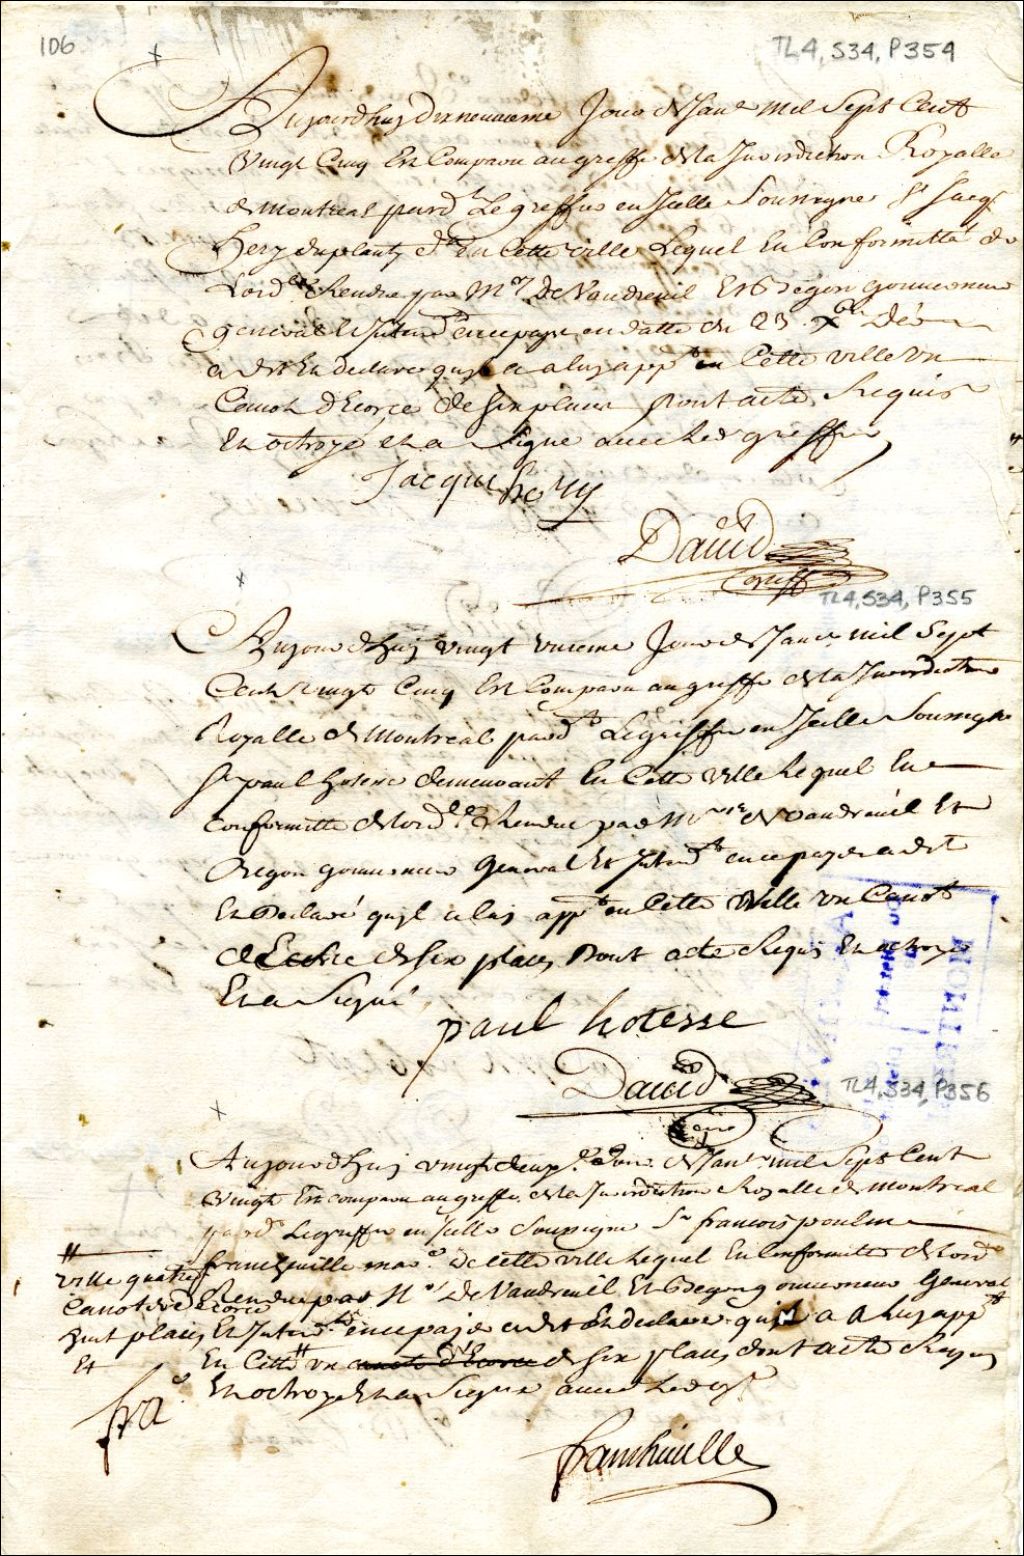 106
TL4, S34, P354
Aujourdhuy dixneuvieme Jour de Janr mil Sept Cent
Vingt Cinq Est Comparu au greffe de la Jurisdiction Royalle
de Montreal pardt Le greffier en Icelle Soussigné Sr Jacq
hery duplanty dt en Cette ville Lequel En Conformitté de
Lordce Rendue par Mrs De Vaudreuil Et Begon gouverneur
general Et Intendt en ce pays en datte du 23 Xbre Der
a dit Et declare quyl a a luy appt en Cette ville Un
Canot d'Ecorce de Six places Dont acte Requis
Et octroyé et a Signé avec Led greffier
Jacque hery
David
Greff
TL4, S34, P355
Aujourdhuy vingt unieme Jour de Janer mil Sept
Cent vingt Cinq Est Comparu au greffe de la Jurisdiction
Royalle de Montreal pardt Le greffier en Icelle Soussigné
Sr paul hotesse demeurant En Cette Ville Lequel En
Conformitté de Lordce Rendue par Mrs de Vaudreuil Et
Begon gouverneur General Et Intendt en ce pays a dit
Et Declaré quyl a luy appt en Cette Ville Un Canot
d'Ecorce de Six places Dont acte Requis Et octroyé
Et a Signé
paul hotesse
David
TL4, S34, P356
Aujourdhuy vingt deux Jour de Janr mil Sept Cent
Vingt Est comparu au greffe de la Jurisdiction Royalle de Montreal
pardt Le greffier en Icelle Soussigné Sr francois poulin
francheville de Cette ville Lequel En Conformitté de Lordce
Rendue par Mrs De Vaudreuil Et Begon gouverneur General
Et Intendt en ce pays a dit Et declare quyl a a luy appt
En Cette # un canot d'Ecorce de Six places dont acte Requis
Et octroyé Et a Signé avec Led gr
#
ville quatre
Canots d'Ecorce
huit places
Et
fra
francheville